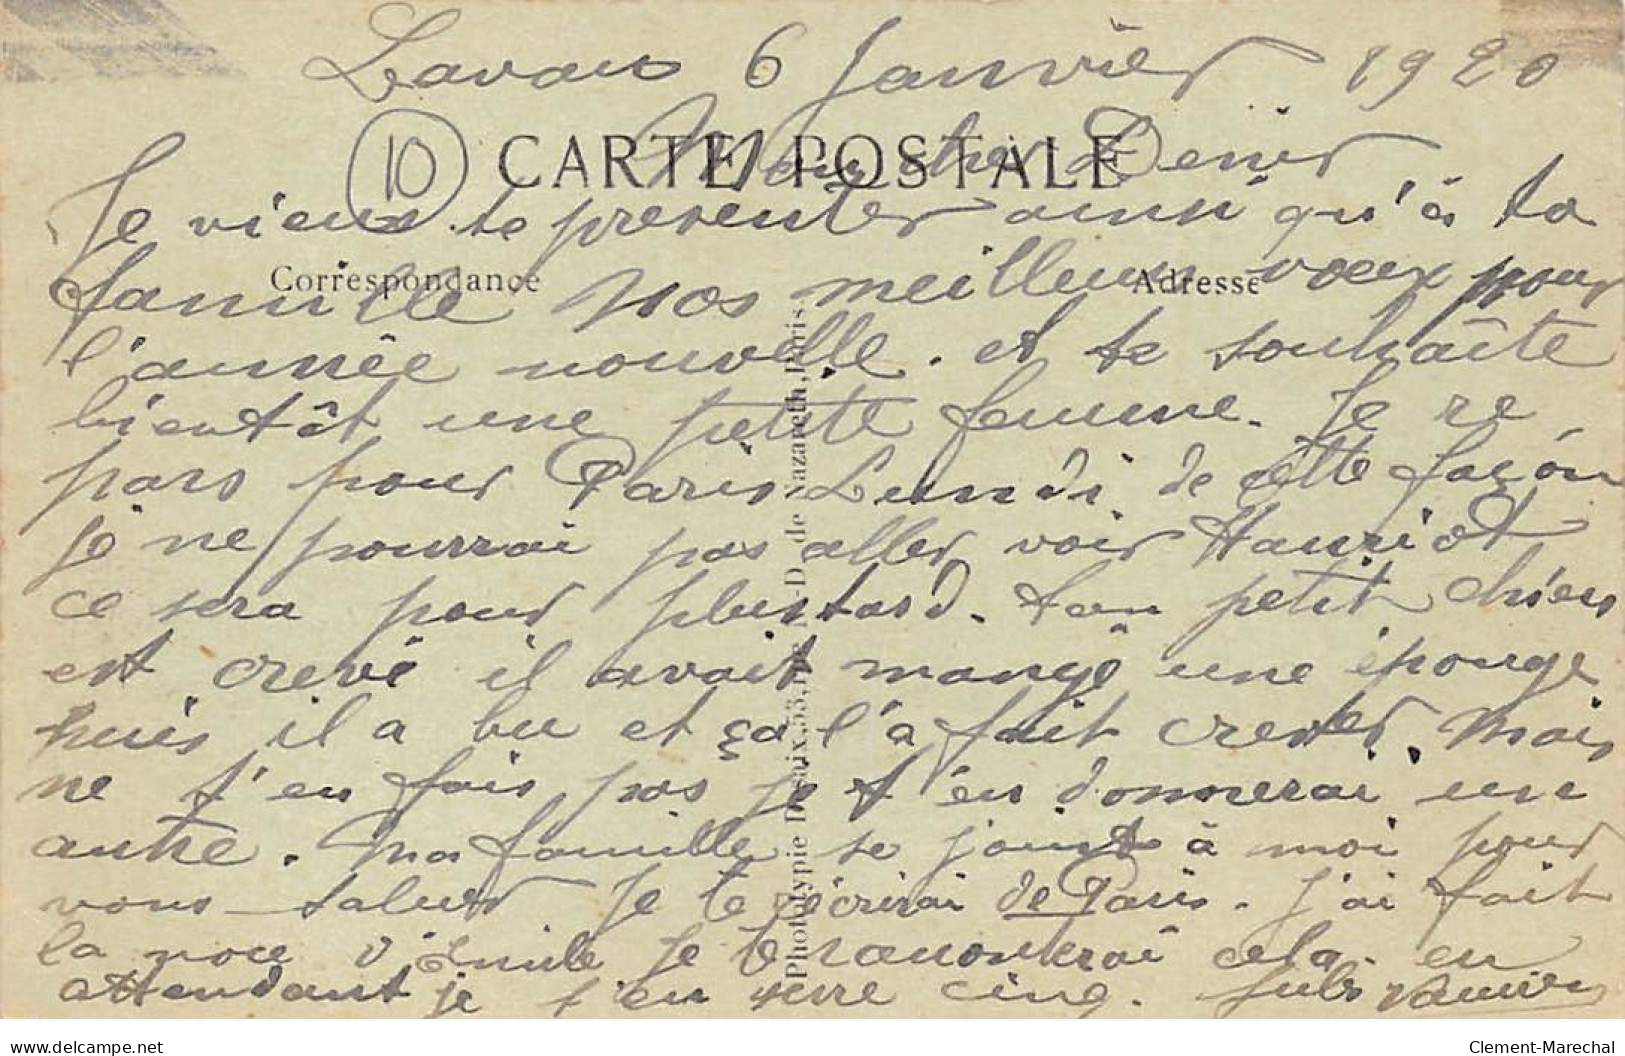 6 Janvier 1920
10
CARTE POSTALE
Mon cher Denis
Je viens te presenter ainsi qu'à ta
Correspondance
Adresse
famille nos meilleurs voeux pour
l'année nouvelle. et te souhaite
bientôt une petite femme. Je re
pars pour Paris Lundi de cette façon
je ne pourrai pas aller voir Hauriot
ce sera pour plustard. ton petit chien
est crevé il avait mangé une éponge
puis il a bu et ça l'a fait crever. Mais
ne t'en fais pas je t'en donnerai un
autre. Ma famille se joint à moi pour
vous saluer Je te écrirai de Paris. J'ai fait
la noce d'Emile Je te raconterai cela. en
attendant je t'en serre cinq. Jules
Phototypie Desaix, 53, Paris
delcampe.net
Clement-Marechal